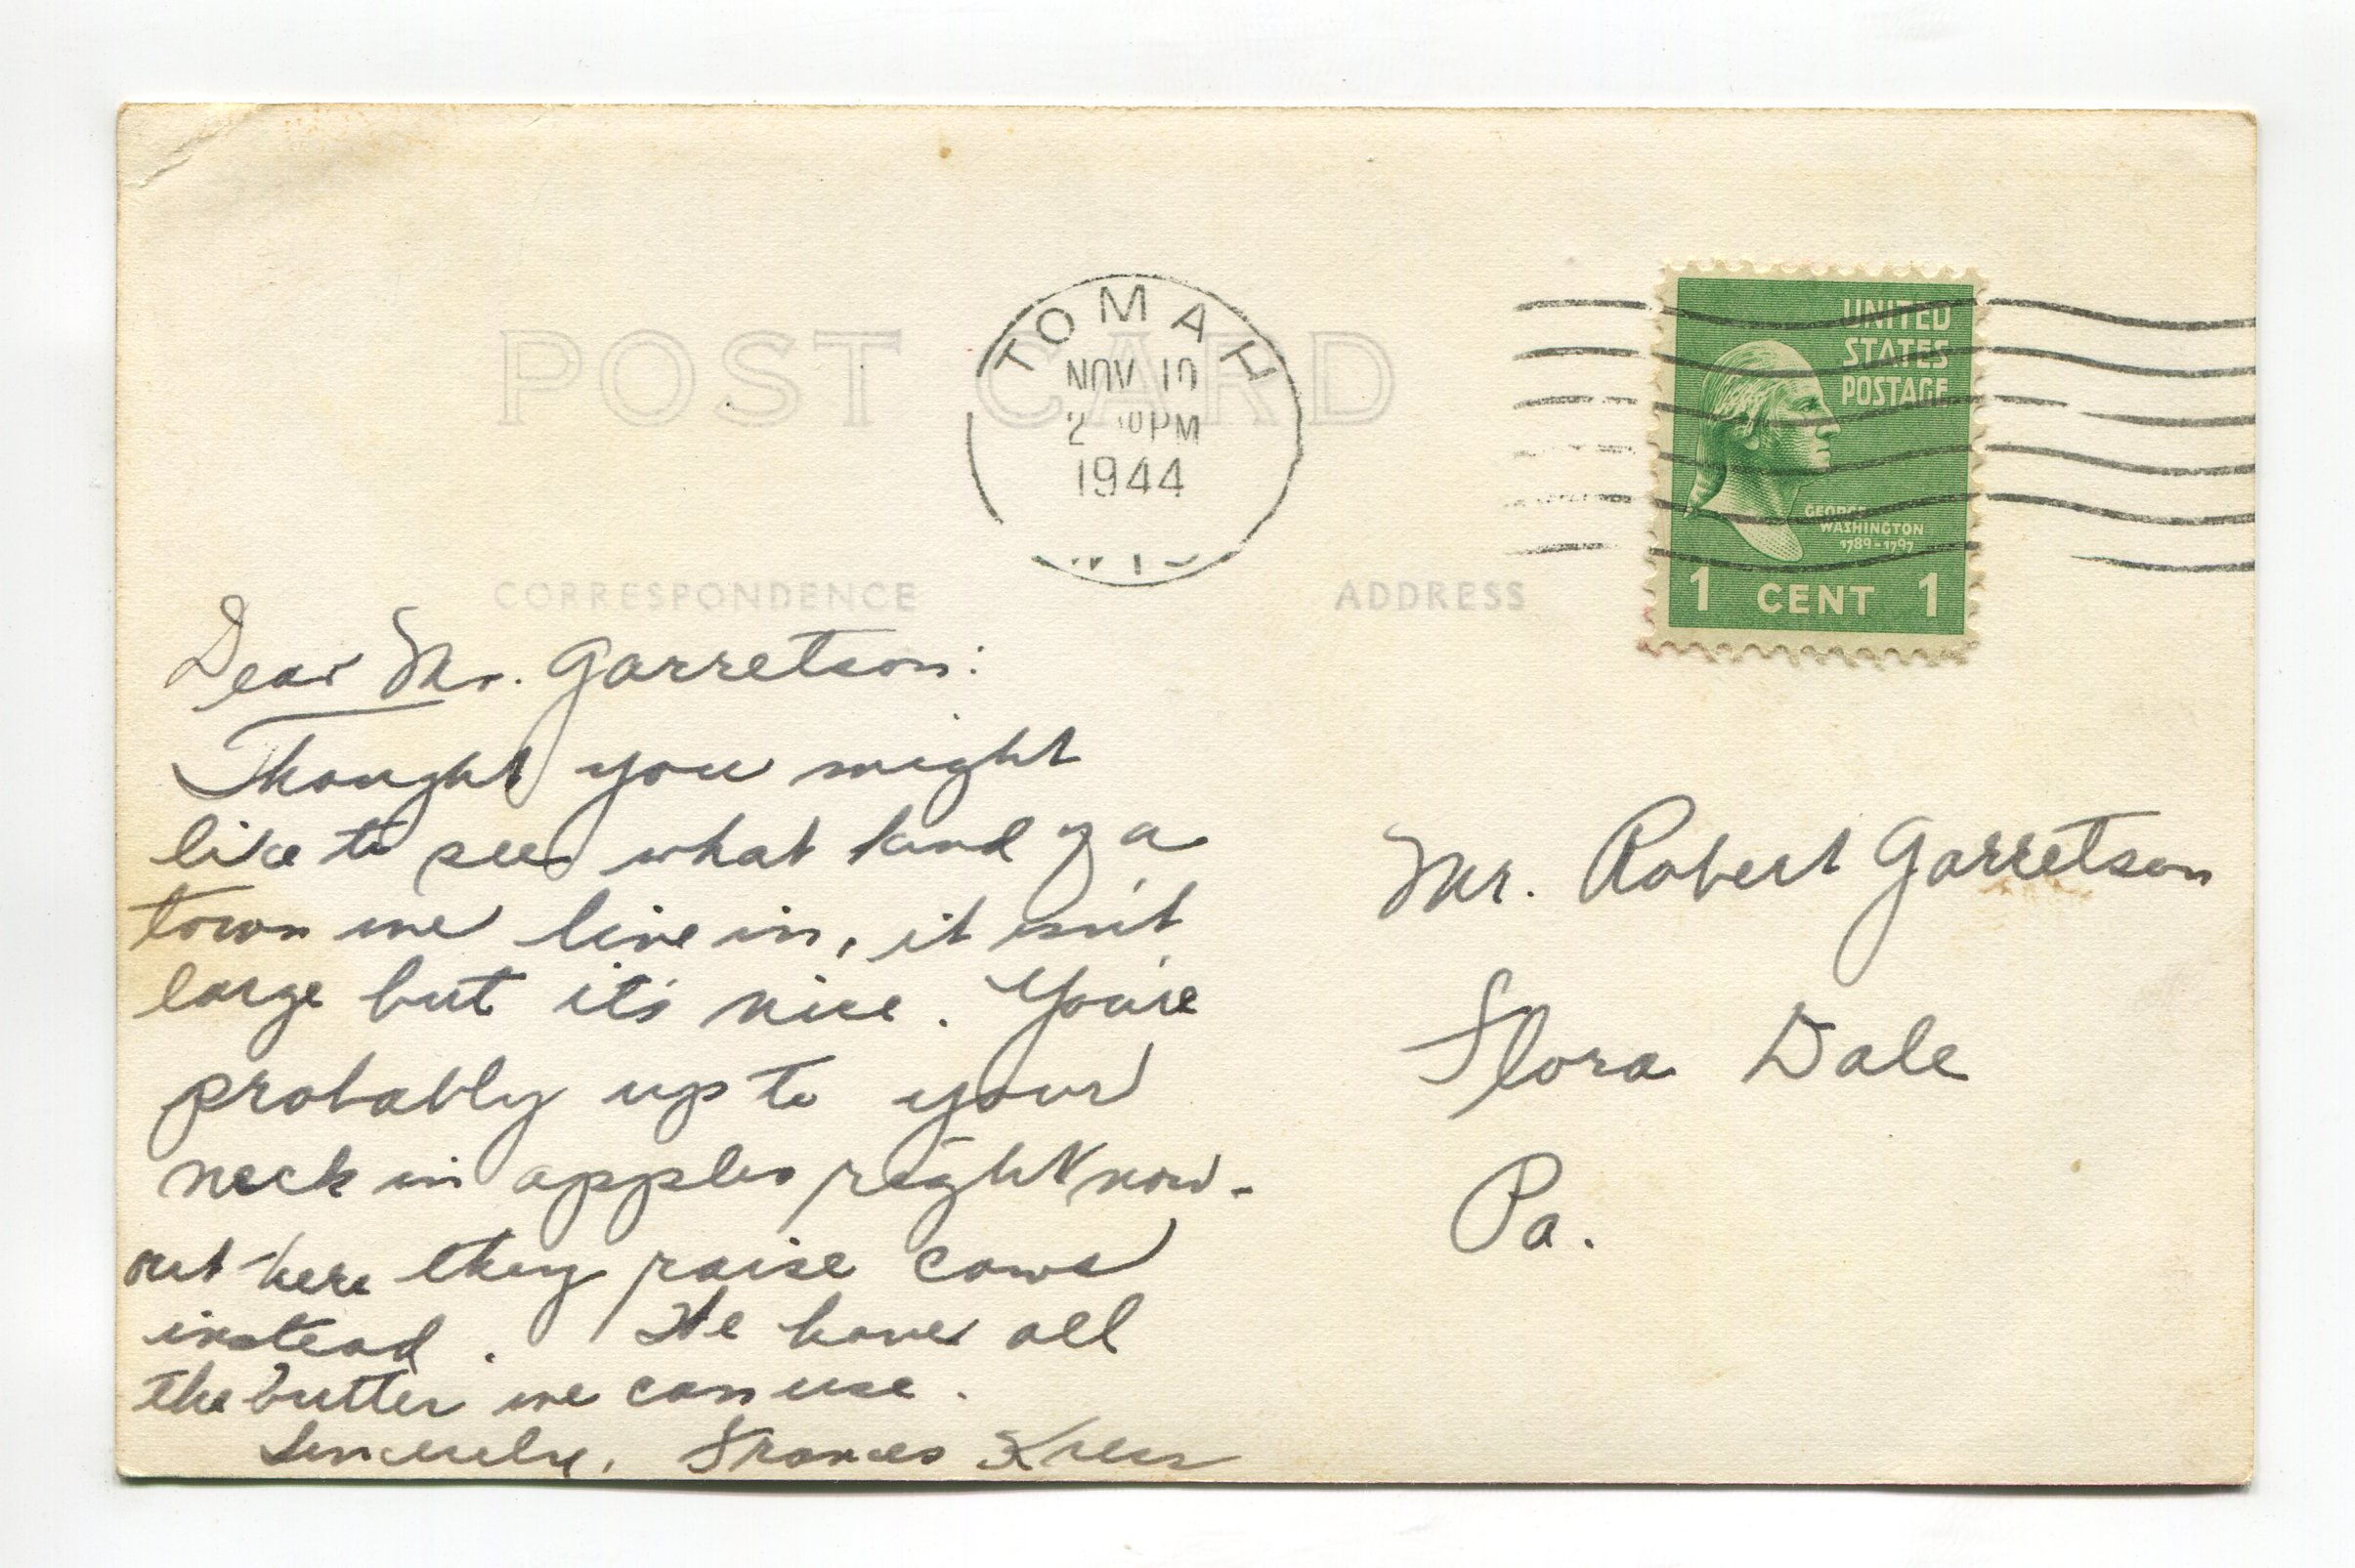 POST CARD
TOMAH
NOV 10
PM
1944
WIS
UNITED
STATES
POSTAGE
GEORGE
WASHINGTON
1789-1797
1 CENT 1
CORRESPONDENCE
ADDRESS
Dear Mr. Garretson:
Thought you might
like to see what kind of a
town we live in, it isn't
large but it's nice. You're
probably up to your
neck in apples right now -
out here they raise cows
instead. We have all
the butter we can use.
Sincerely, Frances Kress
Mr. Robert Garretson
Flora Dale
Pa.